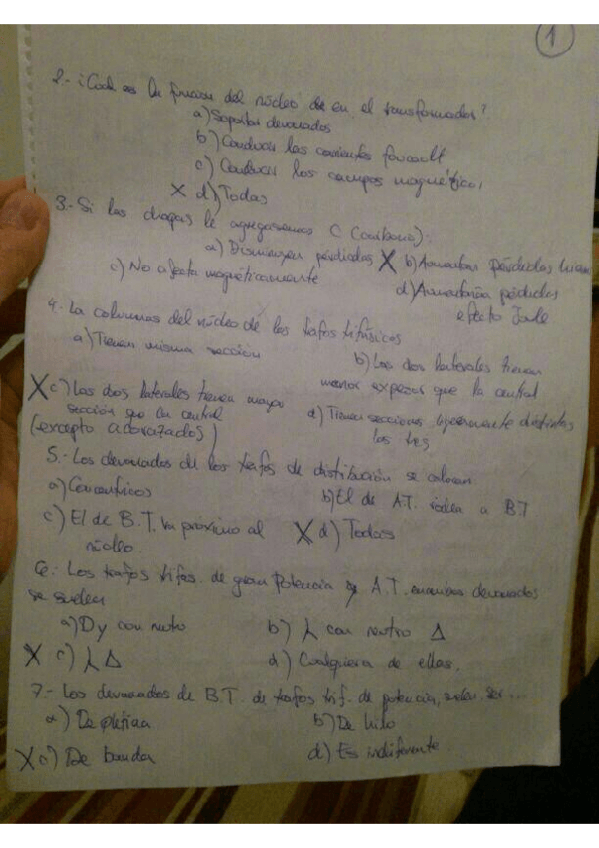 1
2.- ¿Cual es la funcion del núcleo de en el transformador?
a) Soportar devanados
b) Conducir las corrientes foucault
c) Conducir los campos magnéticos
X d) Todas
3.- Si las chapas le agregaramos C (Carbono):
a) Disminuyen pérdidas X b) Aumentan pérdidas
c) No afecta magnéticamente
d) Aumentarían pérdidas
efecto Joule
4.- La columnas del núcleo de los trafos trifásicos
a) Tienen misma sección
b) Las dos laterales tienen
menor espesor que la central
X c) Las dos laterales tienen mayor
sección que la central
(excepto acorazados)
d) Tienen secciones ligeramente distintas
las tres
5.- Los devanados de los trafos de distribución se colocan
a) Concentricos
b) El de A.T. rodea a B.T
c) El de B.T. va próximo al
núcleo
X d) Todas
6.- Los trafos trifas. de gran potencia y A.T. devanados
se suelen
a) Dy con neutro
b) Y con neutro Δ
X c) Y Δ
d) Cualquiera de ellas.
7.- Los devanados de B.T. de trafos trif. de potencia, suelen ser ...
a) De pletina
b) De hilo
X c) De banda
d) Es indiferente